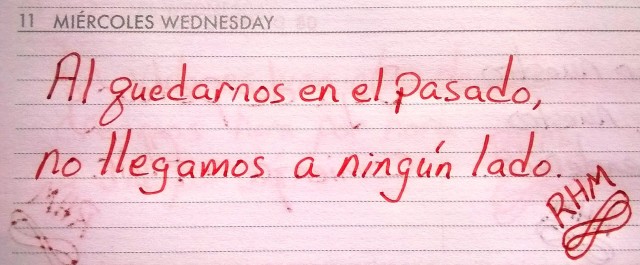 11 MIÉRCOLES WEDNESDAY
Al quedarnos en el pasado,
no llegamos a ningún lado.
RHM